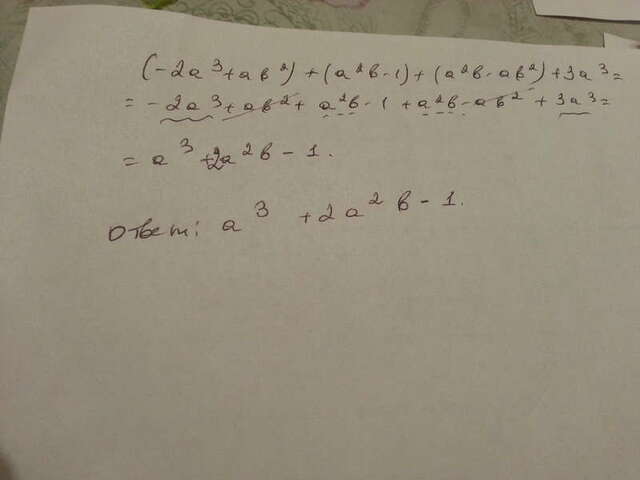 (-2a³+ab²)+(a²b-1)+(a²b-ab²)+3a³=
= -2a³+ab²+a²b-1+a²b-ab²+3a³=
= a³+2a²b-1.
Ответ: a³+2a²b-1.